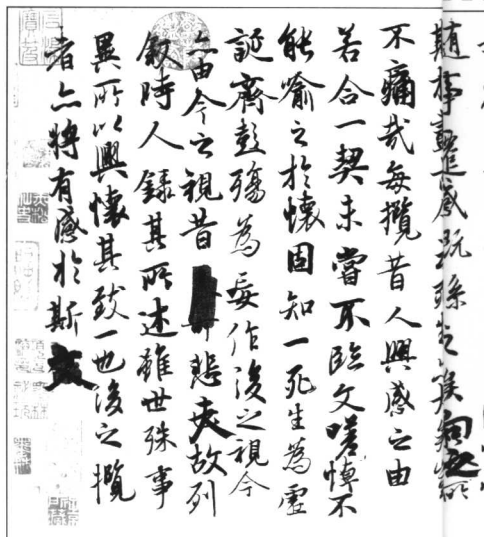 隨事遷感慨係之矣
不痛哉每攬昔人興感之由
若合一契未嘗不臨文嗟悼不
能喻之於懷固知一死生為虛
誕齊彭殤為妄作後之視今
亦由今之視昔悲夫故列
敘時人錄其所述雖世殊事
異所以興懷其致一也後之攬
者亦將有感於斯文